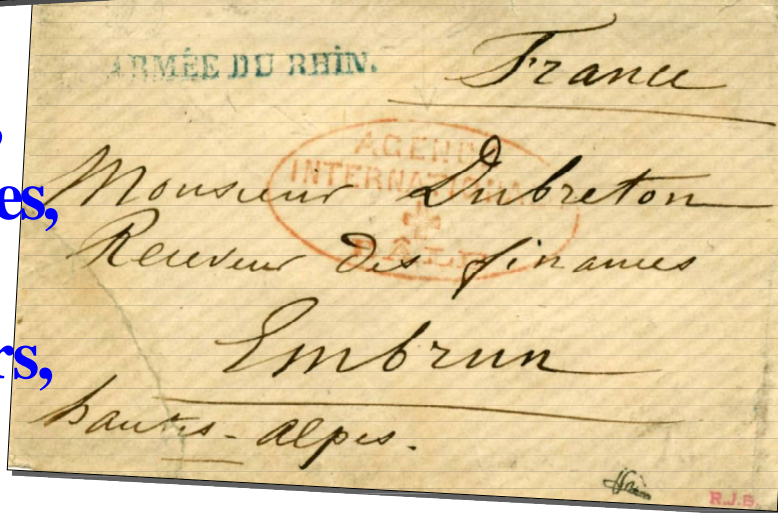 ARMÉE DU RHIN.
France
AGENCE
INTERNATIONALE
BÂLE
Monsieur Dubreton
Receveur des finances
Embrun
hautes-alpes.
R.J.B.
,
es,
rs,